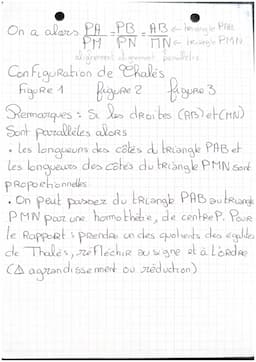 On a alors PA/PM = PB/PN = AB/MN ← triangle PAB ← triangle PMN
alignement alignement parallèles
Configuration de Thalès
Figure 1 figure 2 figure 3
Remarques : Si les droites (AB) et (MN)
Sont parallèles alors
• les longueurs des côtés du triangle PAB et
les longueurs des côtés du triangle PMN sont
proportionnelles
• On peut passer du triangle PAB au triangle
PMN par une homothétie, de centre P. Pour
le Rapport : prendre un des quotients des égalités
de Thalès, réfléchir au signe et à l'ordre
(△ agrandissement ou réduction)